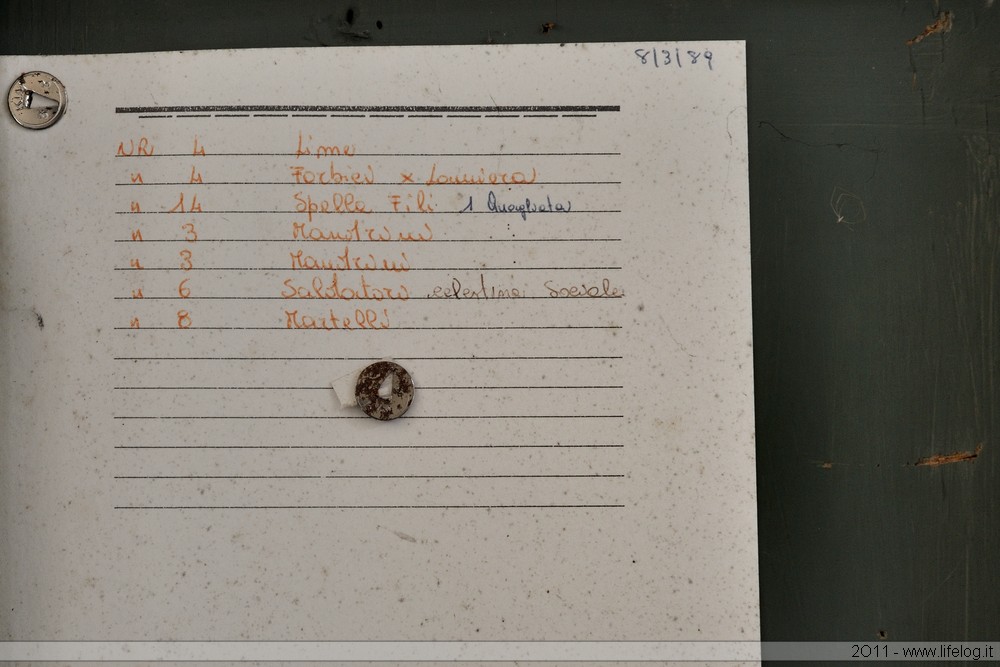 8/3/89
NR 4 Lime
" 4 Forbici x Lamiera
" 14 Spella Fili 1
" 3
" 3
" 6 Saldatori
" 8 Martelli
2011 - www.lifelog.it